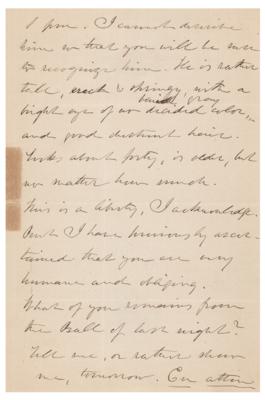 1 p.m. I cannot describe
him so that you will be sure
to recognize him. He is rather
tall, erect & springy, with a
bright eye of no decided color,
and good distinct hair.
Looks about forty, is older, but
no matter how much.
This is a liberty, I acknowledge.
But I have previously ascer-
tained that you are very
humane and obliging.
What of you remains from
the Ball of last night?
Tell me, or rather show
me, tomorrow. En attend